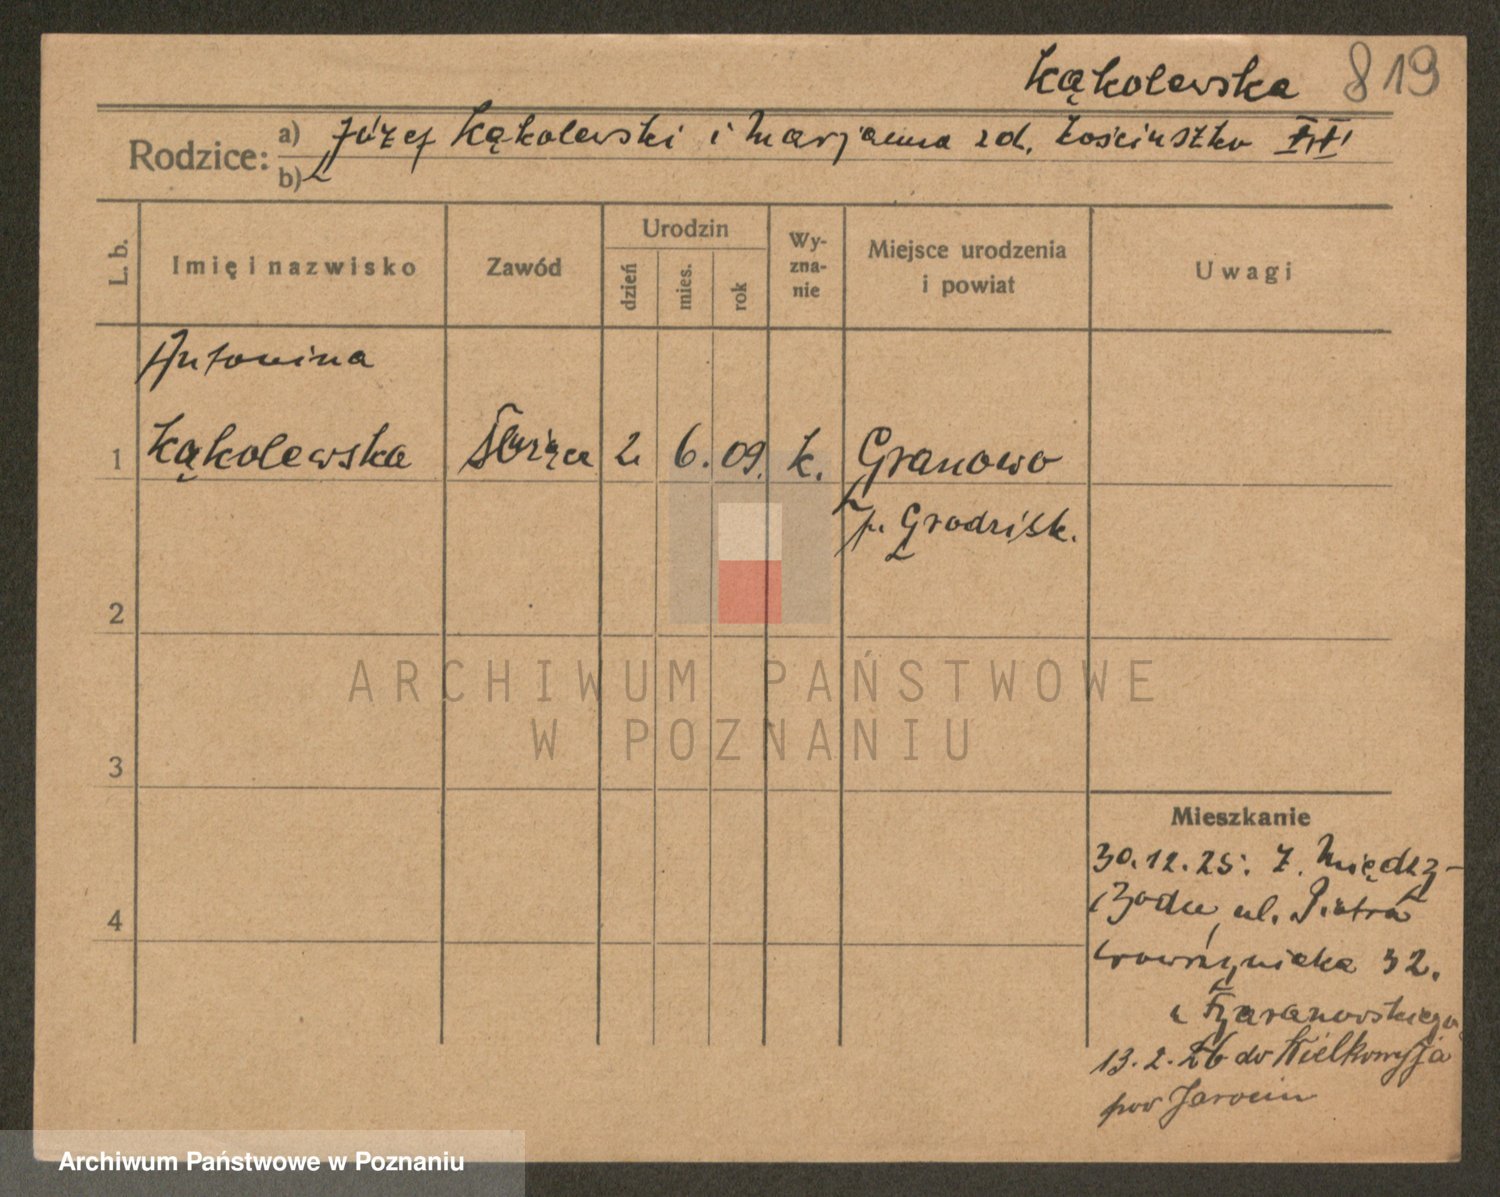 Kąkolewska 819
Rodzice: a) Józef Kąkolewski i Marjanna zd.
b)
L. b.
Imię i nazwisko
Zawód
Urodzin
dzień
mies.
rok
Wy-
zna-
nie
Miejsce urodzenia
i powiat
Uwagi
Antonina
1 Kąkolewska Służąca 2. 6. 09. k. Granowo
p. Grodzisk.
2
ARCHIWUM PAŃSTWOWE
W POZNANIU
3
Mieszkanie
30.12.25. z
ul. Piotra
4
Wawrzyniaka 32.
u
13.2.26 do
pow Jarocin
Archiwum Państwowe w Poznaniu